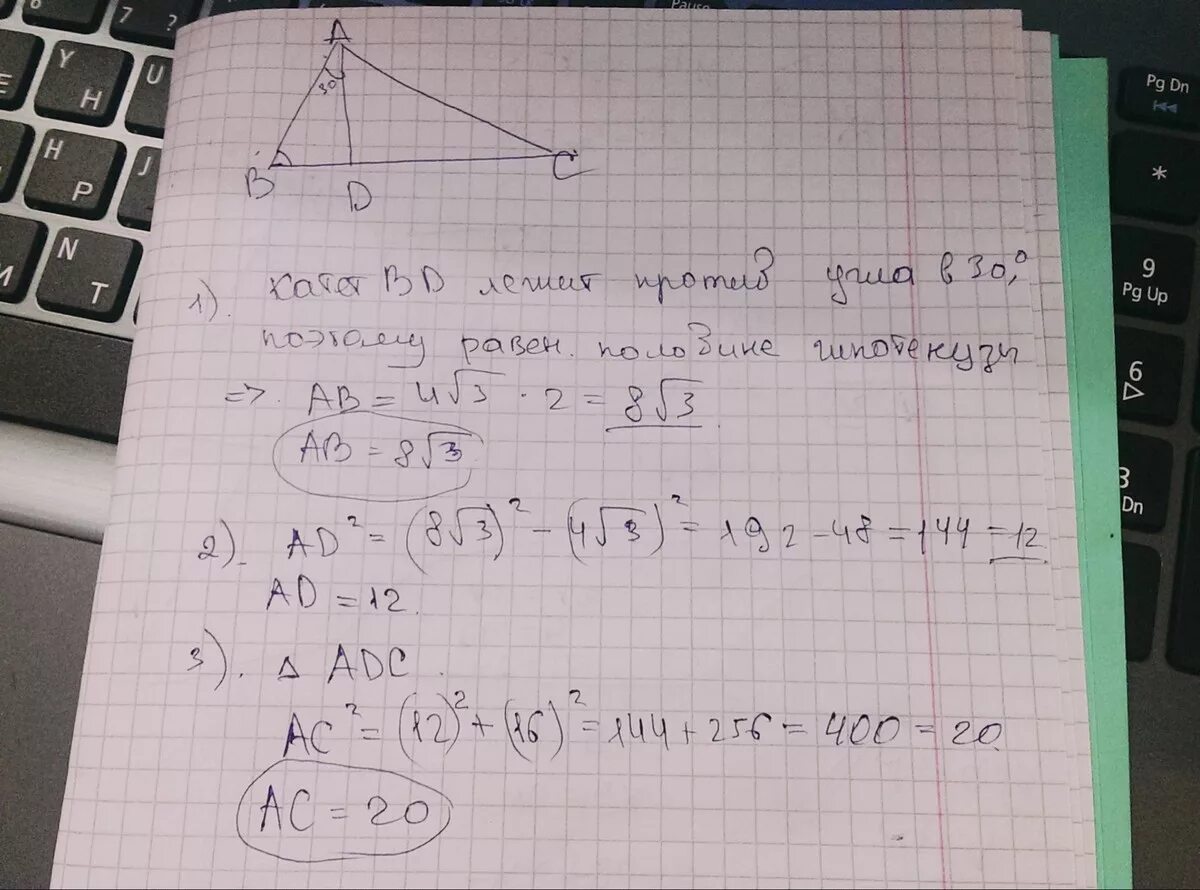 Pause
7 ?
Y
Н
U
H
Р
J
N
Т
Pg Dn
*
9
Pg Up
6
3
Dn
A
30
B
D
C
1). Катет BD лежит против угла в 30°,
поэтому равен половине гипотенузы
=> AB = 4√3 · 2 = 8√3
AB = 8√3
2). AD² = (8√3)² - (4√3)² = 192 - 48 = 144 = 12
AD = 12.
3). Δ ADC.
AC² = (12)² + (16)² = 144 + 256 = 400 = 20
AC = 20